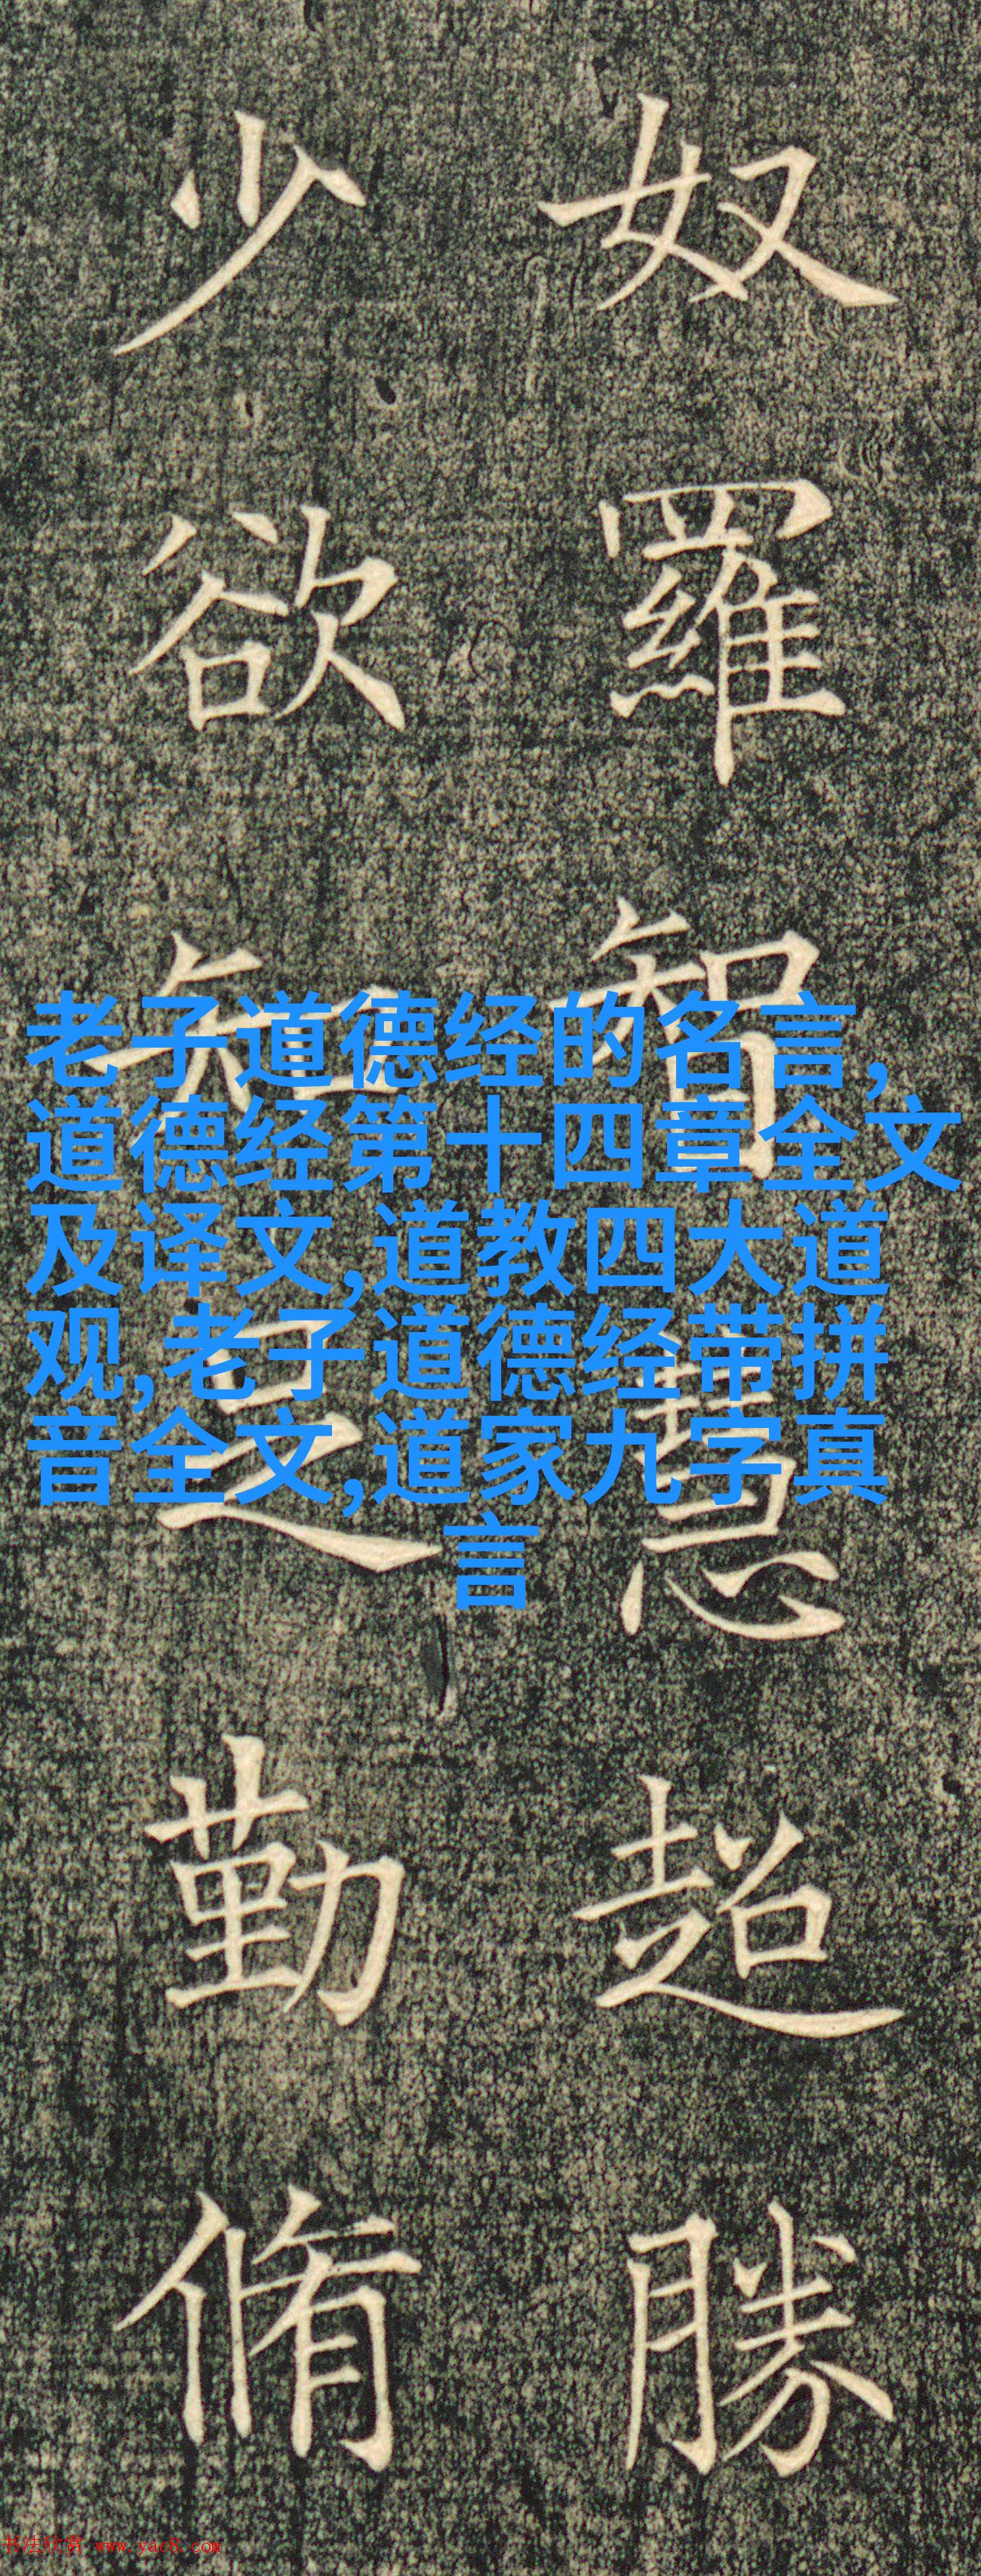 奴羅智慧超勝
少欲知足勤脩
老子道德经的名言,
道德经第十四章全文
及译文,道教四大道
观,老子道德经带拼
音全文,道家九字真
言
书法欣赏 www.yac8.com